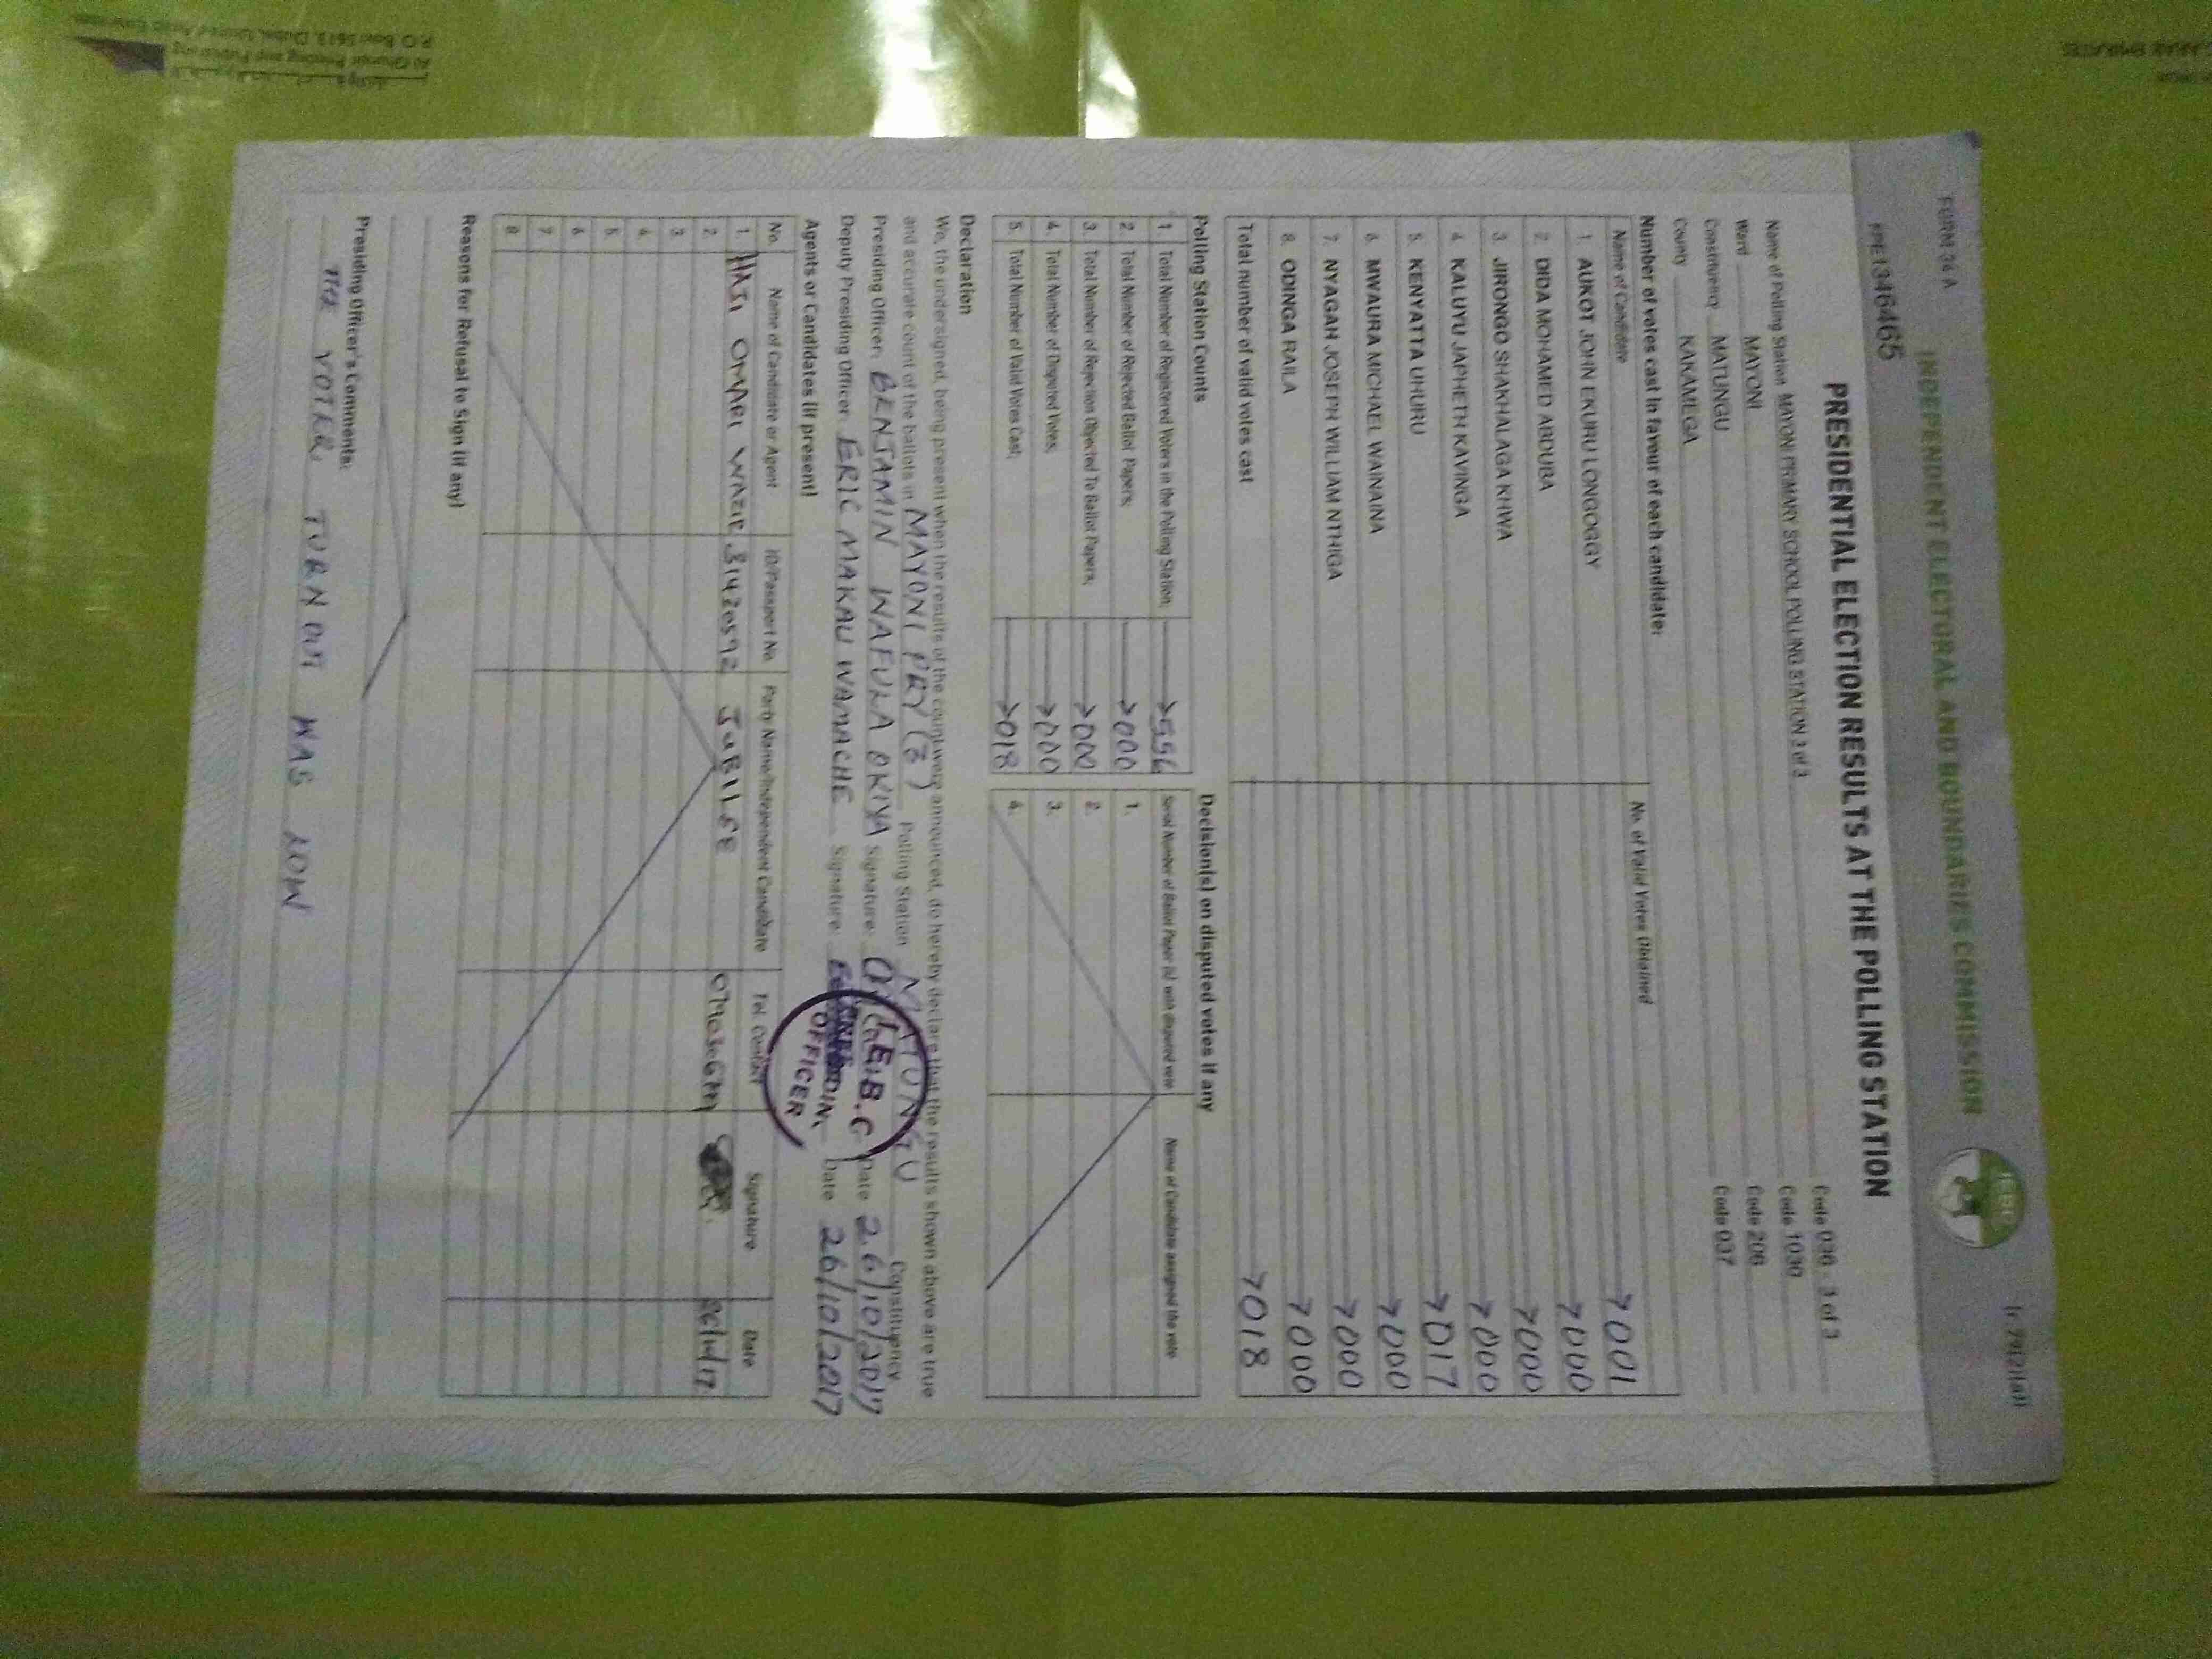 FORM 34 A
[r 79(2)(a)]
INDEPENDENT ELECTORAL AND BOUNDARIES COMMISSION
IEBC
FPE1346465
PRESIDENTIAL ELECTION RESULTS AT THE POLLING STATION
Name of Polling Station MAYONI PRIMARY SCHOOL POLLING STATION 3 of 3 Code 030 - 3 of 3
Ward MAYONI Code 1030
Constituency MATUNGU Code 206
County KAKAMEGA Code 037
Number of votes cast in favour of each candidate:
Name of Candidate No. of Valid Votes Obtained
1. AUKOT JOHN EKURU LONGOGGY 001
2. DIDA MOHAMED ABDUBA 000
3. JIRONGO SHAKHALAGA KHWA 000
4. KALUYU JAPHETH KAVINGA 000
5. KENYATTA UHURU 017
6. MWAURA MICHAEL WAINAINA 000
7. NYAGAH JOSEPH WILLIAM NTHIGA 000
8. ODINGA RAILA 000
Total number of valid votes cast 018
Polling Station Counts
1. Total Number of Registered Voters in the Polling Station; 556
2. Total Number of Rejected Ballot Papers; 000
3. Total Number of Rejection Objected To Ballot Papers; 000
4. Total Number of Disputed Votes; 000
5. Total Number of Valid Votes Cast; 018
Decision(s) on disputed votes if any
Serial Number of Ballot Paper (s) with disputed vote Name of Candidate assigned the vote
1.
2.
3.
4.
Declaration
We, the undersigned, being present when the results of the count were announced, do hereby declare that the results shown above are true
and accurate count of the ballots in MAYONI PRY (3) Polling Station MATUNGU Constituency
Presiding Officer: BENJAMIN WAFULA OKIYA Signature: Date 26/10/2017
Deputy Presiding Officer ERIC MAKAU WAMACHE Signature: Date 26/10/2017
I.E.B.C
OFFICER
Agents or Candidates (if present)
No. Name of Candidate or Agent ID/Passport No. Party Name/Independent Candidate Tel. Contact Signature Date
1. HAJI OMAR WAZIR 31420592 JUBILEE
2.
3.
4.
5.
6.
7.
8.
Reasons for Refusal to Sign (if any)
Presiding Officer's Comments:
THE VOTER TURN OUT WAS LOW
Al Ghurair Printing and Publishing
P.O. Box: 5613, Dubai, United Arab Emirates